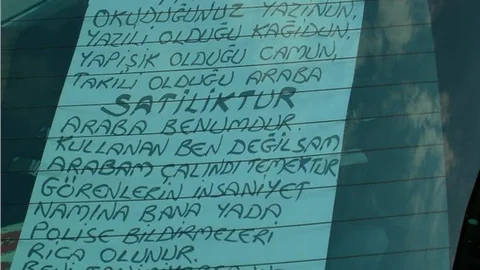 OKUDUĞUNUZ YAZININ,
YAZILI OLDUĞU KAĞIDUN,
YAPIŞIK OLDUĞU CAMUN,
TAKILI OLDUĞU ARABA
SATILIKTUR
ARABA BENUMDUR.
KULLANAN BEN DEĞİLSAM
ARABAM ÇALINDI TEMEKTUR
GÖRENLERİN INSANİYET
NAMINA BANA YADA
POLİSE BİLDİRMELERİ
RİCA OLUNUR.
BENİ